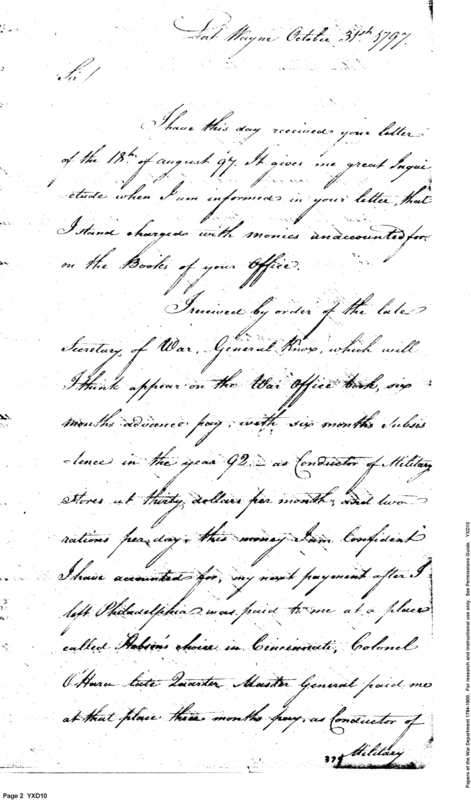 Fort Wayne October 31st 1797.
Sir!
I have this day received your letter
of the 18th of august 97. It gives me great Inqui
etude when I am informed in your letter, that
I stand charged with monies unaccounted for,
on the Books of your Office.
I received by order of the late
Secretary of War, General Knox, which will
I think appear on the War Office book, six
months advance pay, with six months Subsis
-tence in the year 92 - as Conductor of Military
Stores at thirty dollars per month, and two
rations per day, this money I am Confident
I have accounted for, my next payment after I
left Philadelphia was paid to me at a place
called Hobson's choice in Cincinnati, Colonel
O'Hara late Quarter Master General paid me
at that place three months pay, as Conductor of
Military
Page 2 YXD10
Papers of the War Department 1784-1800. For research and instructional use only. See Permissions Guide. YXD10